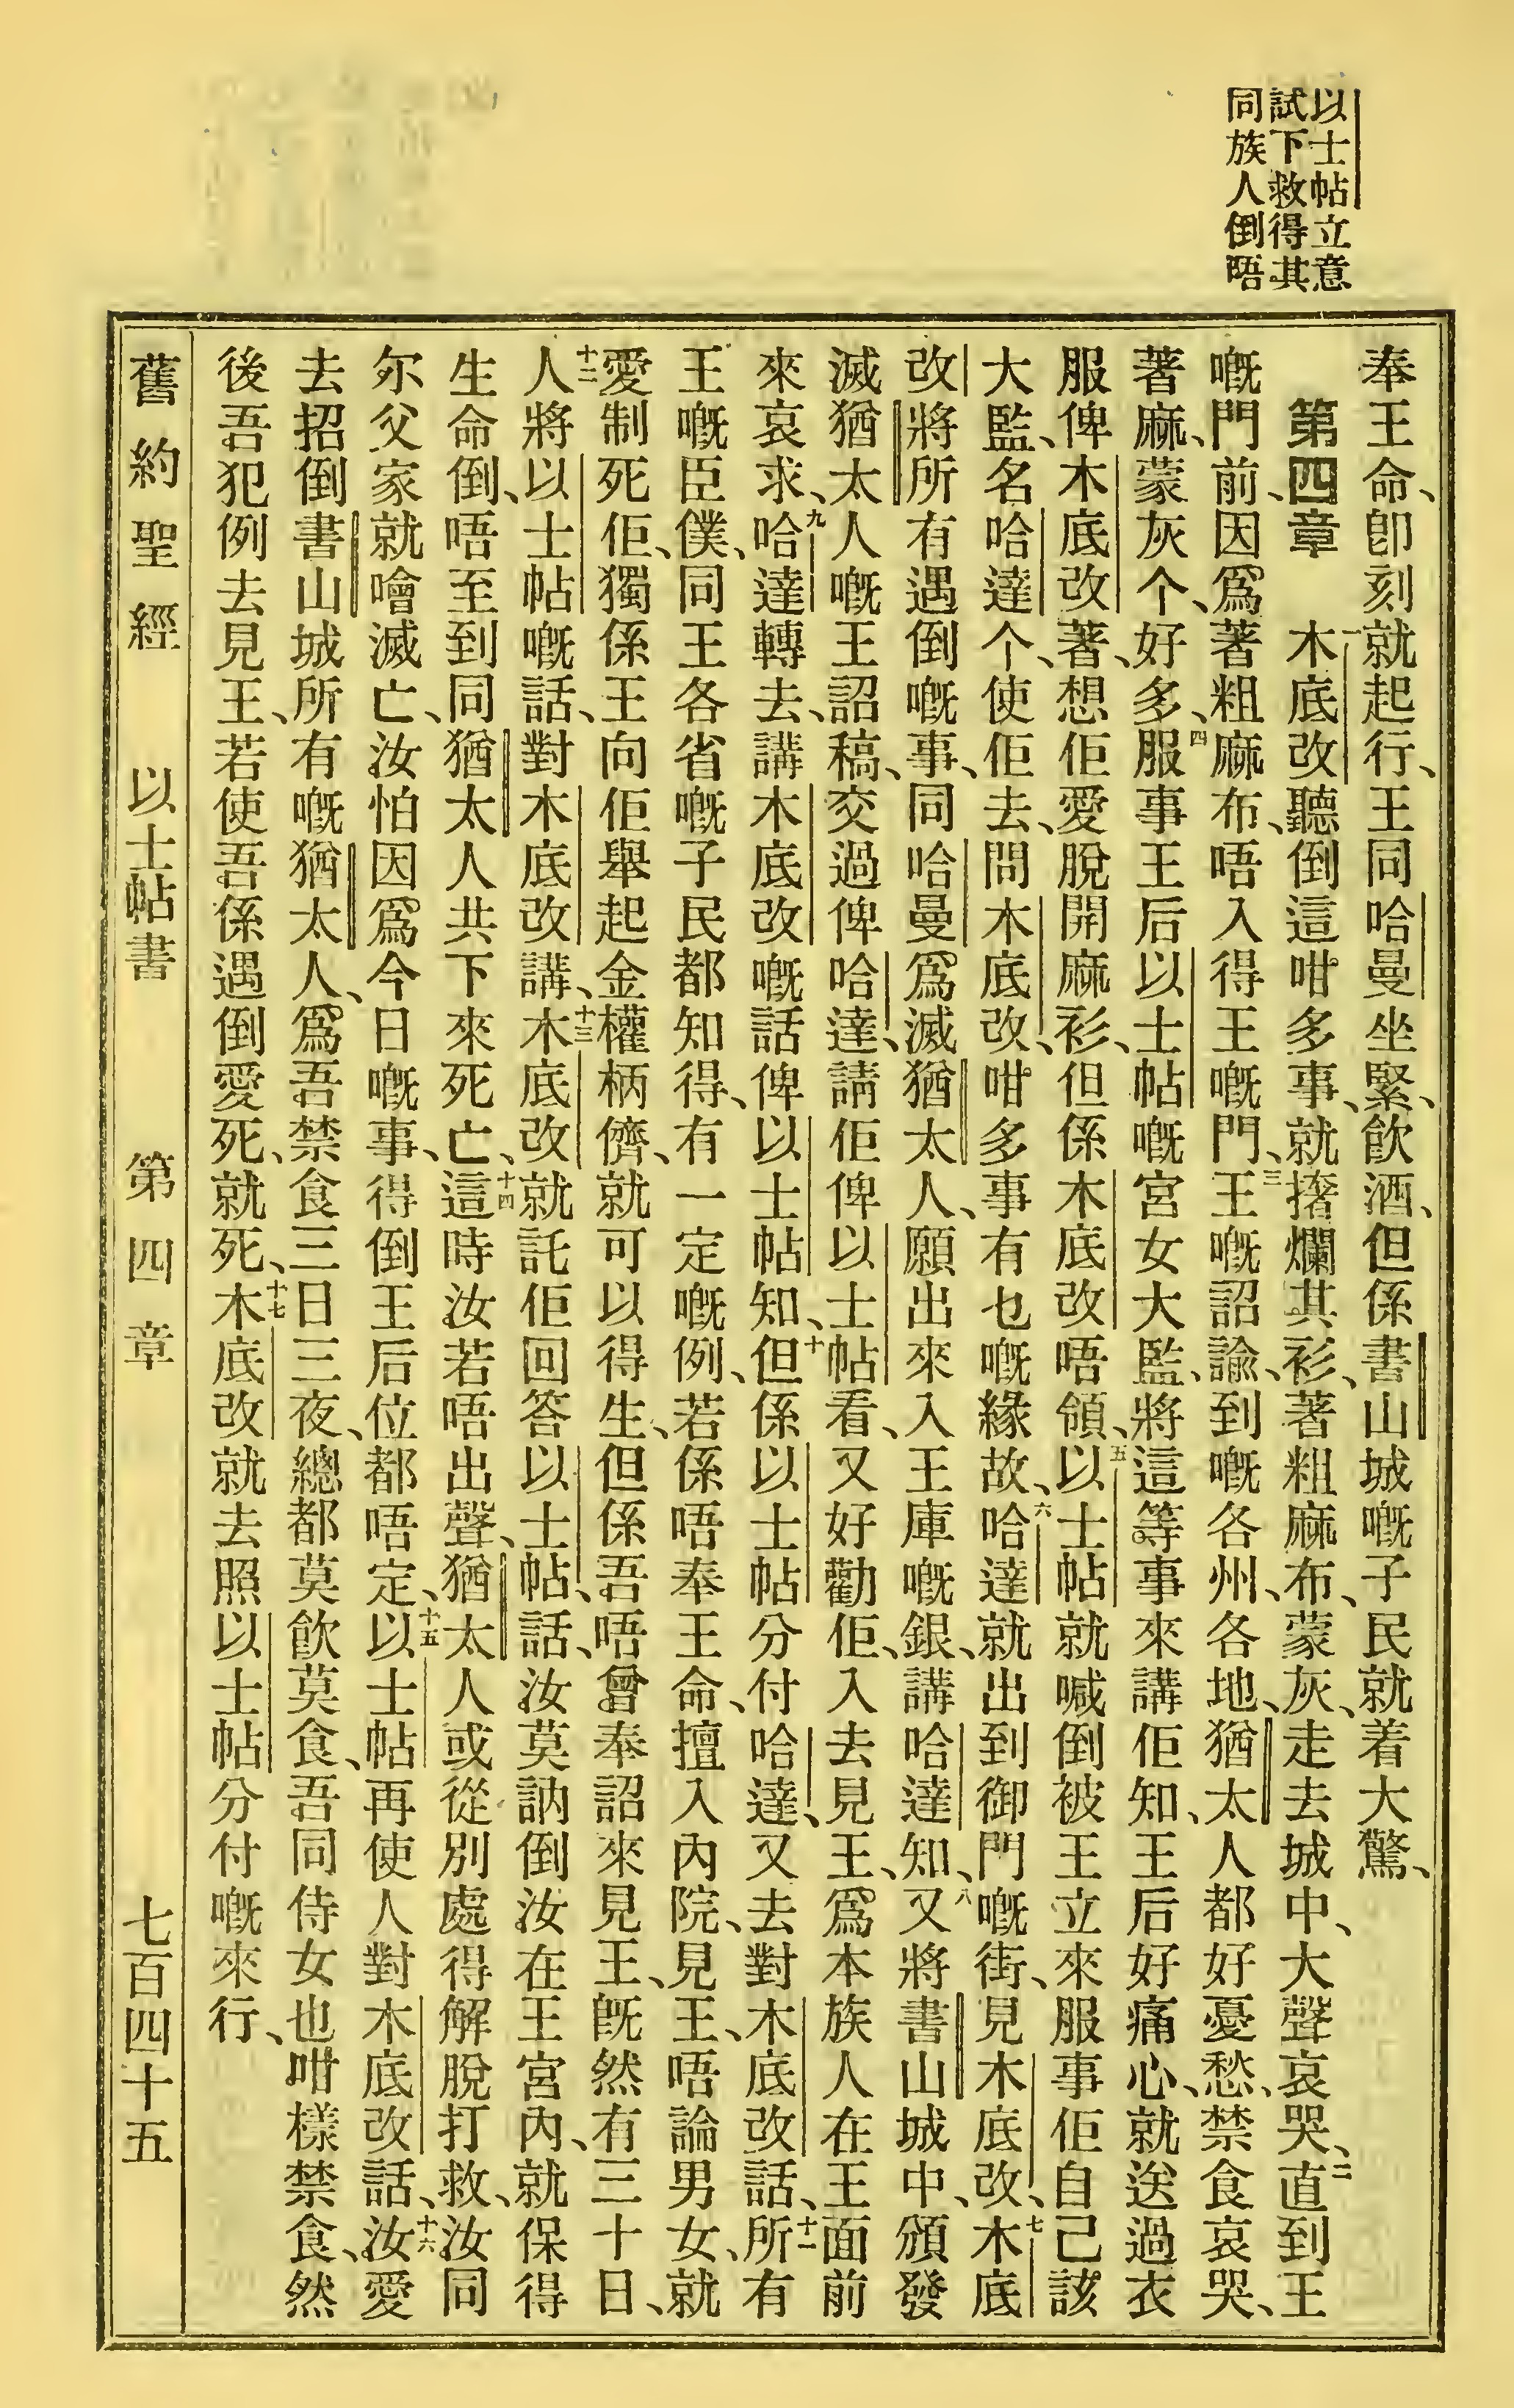 以士帖立意
試下救得其
同族人倒唔
奉王命、卽刻就起行、王同哈曼坐緊、飮酒、但係書山城嘅子民就着大驚、
第四章 一木底改聽倒這咁多事、就撦爛其衫、著粗麻布、蒙灰、走去城中、大聲哀哭、二直到王
嘅門前、因爲著粗麻布、唔入得王嘅門、三王嘅詔諭、到嘅各州、各地、猶太人都好憂愁、禁食哀哭、
著麻、蒙灰个、好多、四服事王后以士帖嘅宮女大監、將這等事來講佢知、王后好痛心、就送過衣
服俾木底改著、想佢愛脫開麻衫、但係木底改唔領、五以士帖就喊倒被王立來服事佢自己該
大監、名哈達个、使佢去、問木底改、咁多事有乜嘅緣故、六哈達就出到御門嘅街、見木底改、七木底
改將所有遇倒嘅事、同哈曼爲滅猶太人、願出來入王庫嘅銀、講哈達知、八又將書山城中、頒發
滅猶太人嘅王詔稿、交過俾哈達、請佢俾以士帖看、又好勸佢、入去見王、爲本族人在王面前
來哀求、九哈達轉去、講木底改嘅話俾以士帖知、十但係以士帖分付哈達、又去對木底改話、十一所有
王嘅臣僕、同王各省嘅子民都知得、有一定嘅例、若係唔奉王命、擅入內院、見王、唔論男女、就
愛制死佢、獨係王向佢舉起金權柄儕、就可以得生、但係吾唔曾奉詔來見王、旣然有三十日、
十二人將以士帖嘅話、對木底改講、十三木底改就託佢回答以士帖、話、汝莫訥倒汝在王宮內、就保得
生命倒、唔至到同猶太人共下來死亡、十四這時汝若唔出聲、猶太人或從別處得解脫打救、汝同
尔父家就噲滅亡、汝怕因爲今日嘅事、得倒王后位都唔定、十五以士帖再使人對木底改話、十六汝愛
去招倒書山城所有嘅猶太人、爲吾禁食三日三夜、總都莫飮莫食、吾同侍女也咁樣禁食、然
後吾犯例去見王、若使吾係遇倒愛死、就死、十七木底改就去照以士帖分付嘅來行、
舊約聖經 以士帖書 第四章 七百四十五